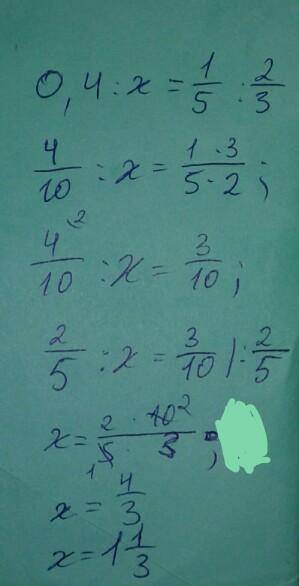 0,4 : x = 1/5 : 2/3
4/10 : x = 1·3/5·2 ;
4/10 (2 : x = 3/10 ;
2/5 : x = 3/10 | : 2/5
x = 2 · 10 2/1 5 · 3 ;
x = 4/3
x = 1 1/3